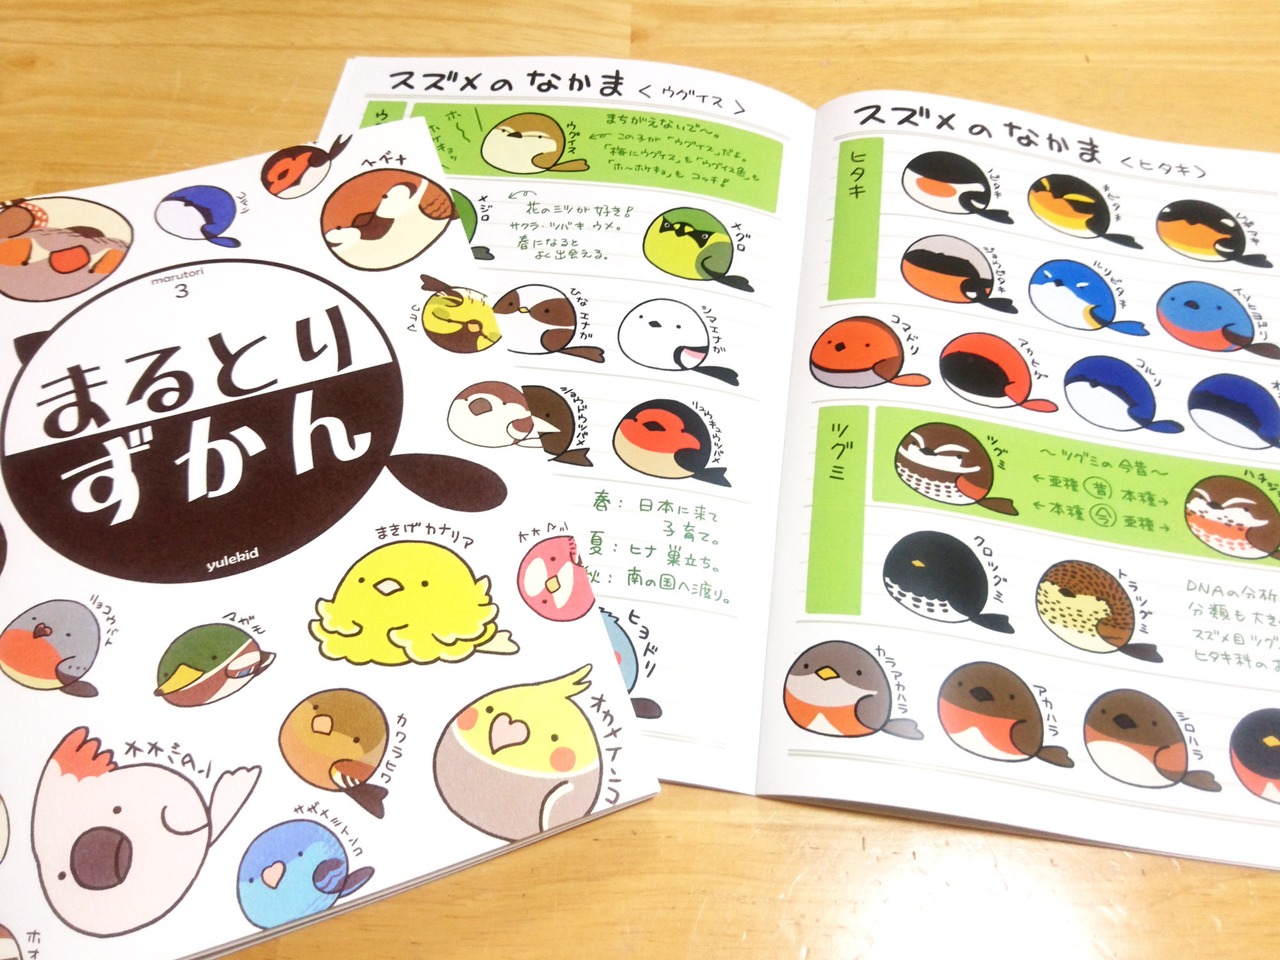 marutori
3
まるとり
ずかん
yulekid
コルリ
ヘキチ
まきげカナリア
リョコウバト
マガモ
カワラヒワ
オカメインコ
サザナミインコ
ホオ
スズメのなかま<ウグイス>
ウ
ホ〜
ウグイス
まちがえないで〜。
←この子が「ウグイス」だよ。
「梅にウグイス」も「ウグイス色」も
「ホ〜ホケキョ」もコッチ!
メジロ
花のミツが好き!
サクラ・ツバキ・ウメ。
春になると
よく出会える。
メグロ
ひな
エナガ
シマエナガ
ショウドウツバメ
リュウキュウツバメ
春:日本に来て
子育て。
夏:ヒナ巣立ち。
秋:南の国へ渡り。
ヒヨドリ
スズメのなかま<ヒタキ>
ヒタキ
ノビタキ
キビタキ
ジョウビタキ
ルリビタキ
コマドリ
アカヒゲ
コルリ
ツグミ
ツグミ
〜ツグミの今昔〜
←亜種 昔 本種→
←本種 今 亜種→
ハチジ
クロツグミ
トラツグミ
DNAの分析
分類も大き
スズメ目ツグ
ヒタキ科の
カラアカハラ
アカハラ
シロハラ